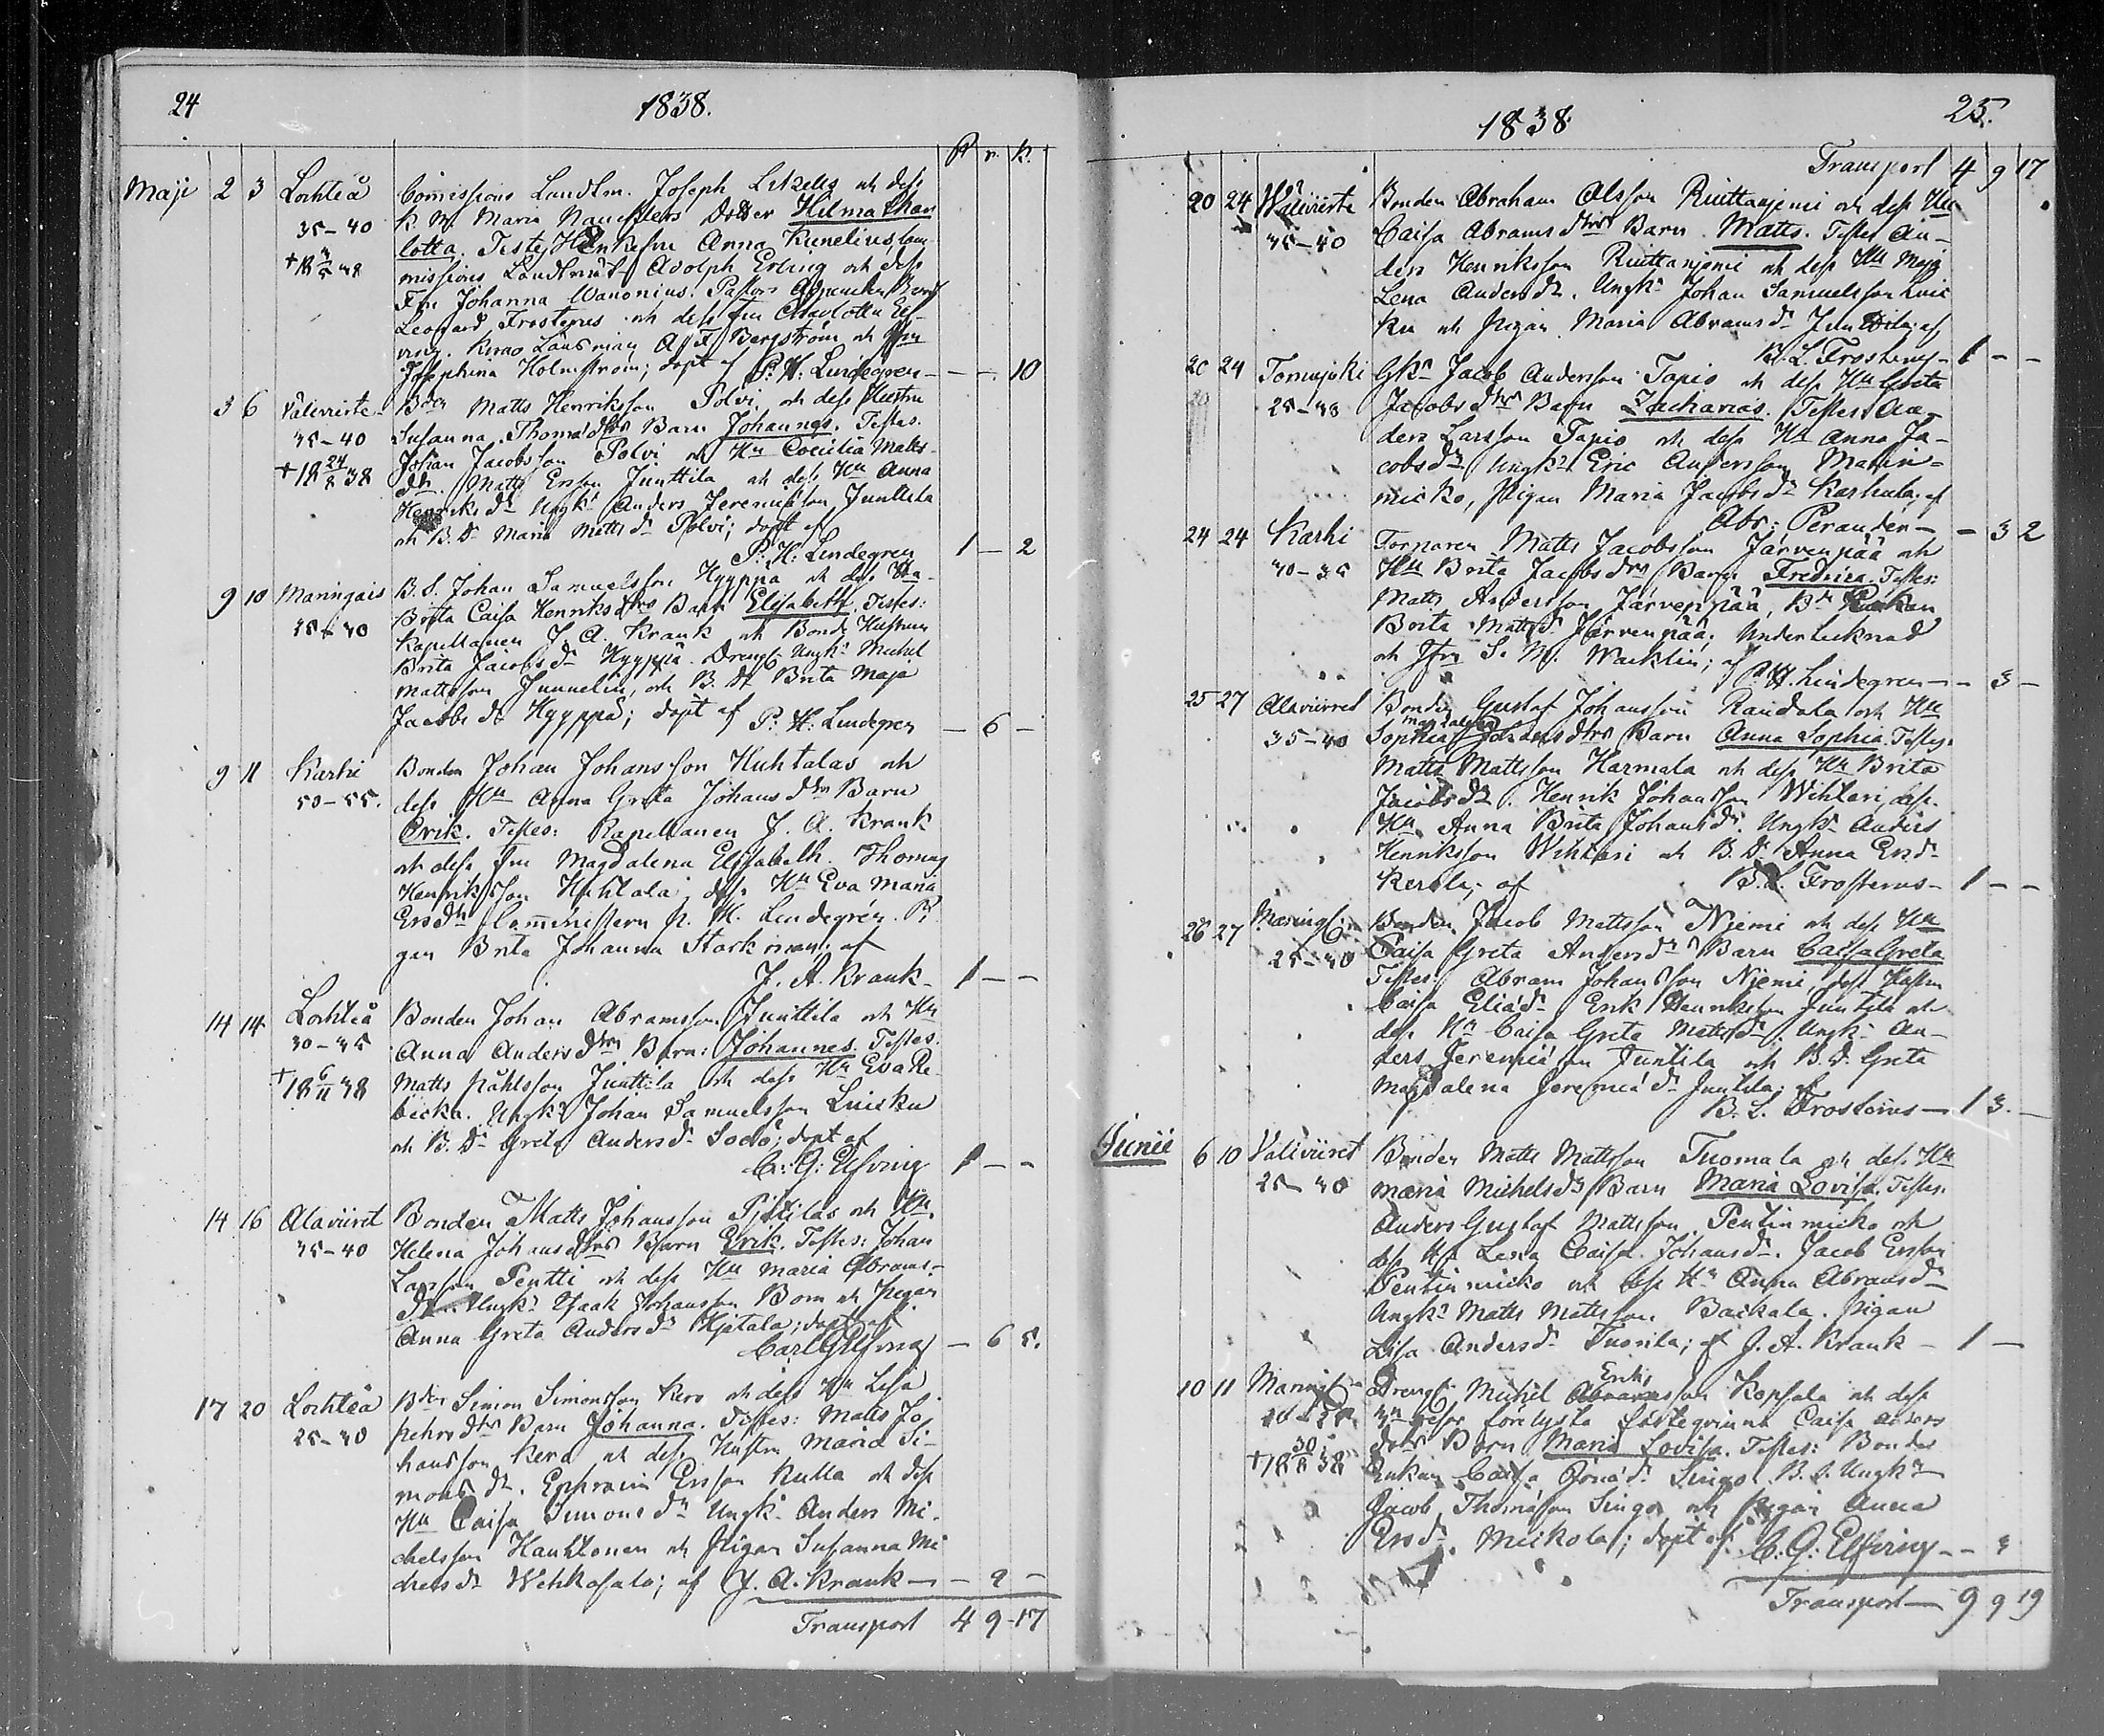 24
1838.
R r. K.
Maji 2 3 Lochteå Commissions Landtm. Joseph Litzelis och dess
35-40 K. M. Maria Dotter Hilma Char
+18 3/5 38 lotta. Testes: Anna Kunelius, Com
missions Adolph Erling och dess
Fru Johanna Wanonius. Pastors
Leonard Frosterus och dess Fru Charlotta El-
ving. Länsman A F Bergström och
Josephina Holmström; döpt af P. H. Lindegren — — 10
3 6 Väliviirre Bden Matts Henriksson Polvi och dess Hustru
35-40 Susanna Thomædtrs Barn Johannes. Testes.
+18 24/8 38 Johan Jacobsson Polvi och Hu Cecilia Matts
dtr. Matts Ersson Junttila och dess Hu Anna
Henriksdr Ungk. Anders Jeremiæson Junttila
och B. Dr Maria Mattsdr Polvi; döpt af
P. H. Lindegren 1 — 2
9 10 Maringais B. S. Johan Samuelsson Hyyppä och dess Hu
25-30 Brita Caisa Henriksdtrs Barn Elisabeth. Testes:
Kapellanen J. A. Krank och Bonde Hustrun
Brita Jacobsdr Hyyppä. Dreng Ungk. Michel
Mattsson Junnelin, och B. Dr Brita Maja
Jacobsdr Hyyppä; döpt af P. H. Lindegren — 6 —
9 11 Karhi Bonden Johan Johansson Huhtalas och
50-55. dess Hu Anna Greta Johansdtrs Barn
Erik. Testes: Kapellanen J. A. Krank
och dess Fru Magdalena Elisabeth. Thomas
Henriksson Huhtala, dess Hu Eva Maria
Ersdtr Comministern P. H. Lindegren. Pi
gan Brita Johanna Starkman; af
J. A. Krank 1 — —
14 14 Lochteå Bonden Johan Abramsson Junttila och Hu
30-35 Anna Andersdtrs Barn: Johannes. Testes:
+18 6/11 38 Matts Påhlsson Junttila och dess Hu Eva Re
becka. Ungk. Johan Samuelsson Luicku
och B. Dr Greta Andersdr Sodö; döpt af
C: G: Elfving 1 — —
14 16 Alaviiret Bonden Matts Johansson Pjetilas och Hu.
35-40 Helena Johansdtrs Barn Erik. Testes: Johan
Larsson Pentti och dess Hu Maria Abrams-
dr. Ungk. Isaak Johansson Bom och Pigan
Anna Greta Andersdr Hjetala; döpt af
Carl G Elfving — 6 5.
17 20 Lochteå Bden Simon Simonsson Kero och dess Hu Lisa
25-30 Pehrsdtrs Barn Johanna. Testes: Matts Jo
hansson Kero och dess Hustru Maria Si-
monsdr. Ephraim Ersson Kulla och dess
Hu Caisa Simonsdr Ungk. Anders Mi-
chelsson Hanhkonen och Pigan Susanna Mi
chelsdr Wehkasalo; af J. A. Krank — 2 —
Transport 4 9 17
1838
25.
Transport 4 9 17
20 24 Väliviirre Bonden Abraham Olsson Riuttanjemi och dess Hu
35-40 Caisa Abramsdtrs Barn Matts. Testes An-
ders Henriksson Riuttanjemi och dess Hu Maja
Lena Andersdr. Ungk. Johan Samuelsson Luic
ku och Pigan Maria Abramsdr Junttila; af
B. L. Frosterus 1 — —
20 24 Tomujoki Gkn Jacob Andersson Tapio och dess Hu Greta
25-30 Jacobsdtrs Barn Zacharias. Testes An-
ders Larsson Tapio och dess Hu Anna Ja-
cobsdr Ungk. Eric Andersson Marin-
micko, Pigan Maria Jacobsdr Karhula; af
Abr: Perander — — 3 2
24 24 Karhi Torparen Matts Jacobsson Järvenpää och
30-35 Hu Brita Jacobsdrs Barn Fredrica. Testes:
Matts Andersson Järvenpää, Bde Enkan
Brita Mattsdr Järvenpää; Undertecknad
och Jfru S. M. Wacklin; af P. H. Lindegren — — 3 —
25 27 Alaviirret Bonden Gustaf Johansson Raudala och Hu
Magdalena
35-40 Sophia Johansdtrs Barn Anna Sophia. Testes.
Matts Mattsson Harmala och dess Hu Brita
Jacobsdr. Henrik Johansson Wihtari, dess
Hu. Anna Brita Johansdr. Ungk. Anders
Henriksson Wihtari och B. Dr Anna Ersdr
Kerola; af B. L. Frosterus — 1 — —
26 27 Maringais Bonden Jacob Mattsson Njemi och dess Hu
25-30 Caisa Greta Andersdr Barn Caisa Greta
Testes: Abram Johansson Njemi, dess Hustru
Caisa Eliædr Erik Henriksson Juntila och
dess Hu Caisa Greta Mattsdr. Ungk. An-
ders Jeremiæson Juntila och B. Dr Greta
Magdalena Jeremiædr Juntila; af
B. L. Frosterus — 1 3. —
Junii 6 10 Väliviiret Bonden Matts Mattsson Tuomala och dess Hu
25-30 Maria Michelsdr Barn Maria Lovisa. Testes.
Anders Gustaf Mattsson Pentinmicko och
dess Hu Lena Caisa Johansdr. Jacob Ersson
Pentinmicko och dess Hu Anna Abramsdr
Ungk. Matts Mattsson Backala. Pigan
Lisa Andersdr Tuorila; af J. A. Krank — 1 —
Eriks
10 11 Maringais Dreng Michel Abramsson Kopsala och dess
gr lysta Fästeqvinna Caisa Anders
+18 30/8 38 dotters Barn Maria Lovisa. Testes: Bonde
Enkan Caisa Jonædr Lingo B. S. Ungk.
Jacob Thomæson Lingo och Pigan Anna
Ersdr. Mickola; döpt af C. G: Elfving — — 3
Transport — 9 9 19